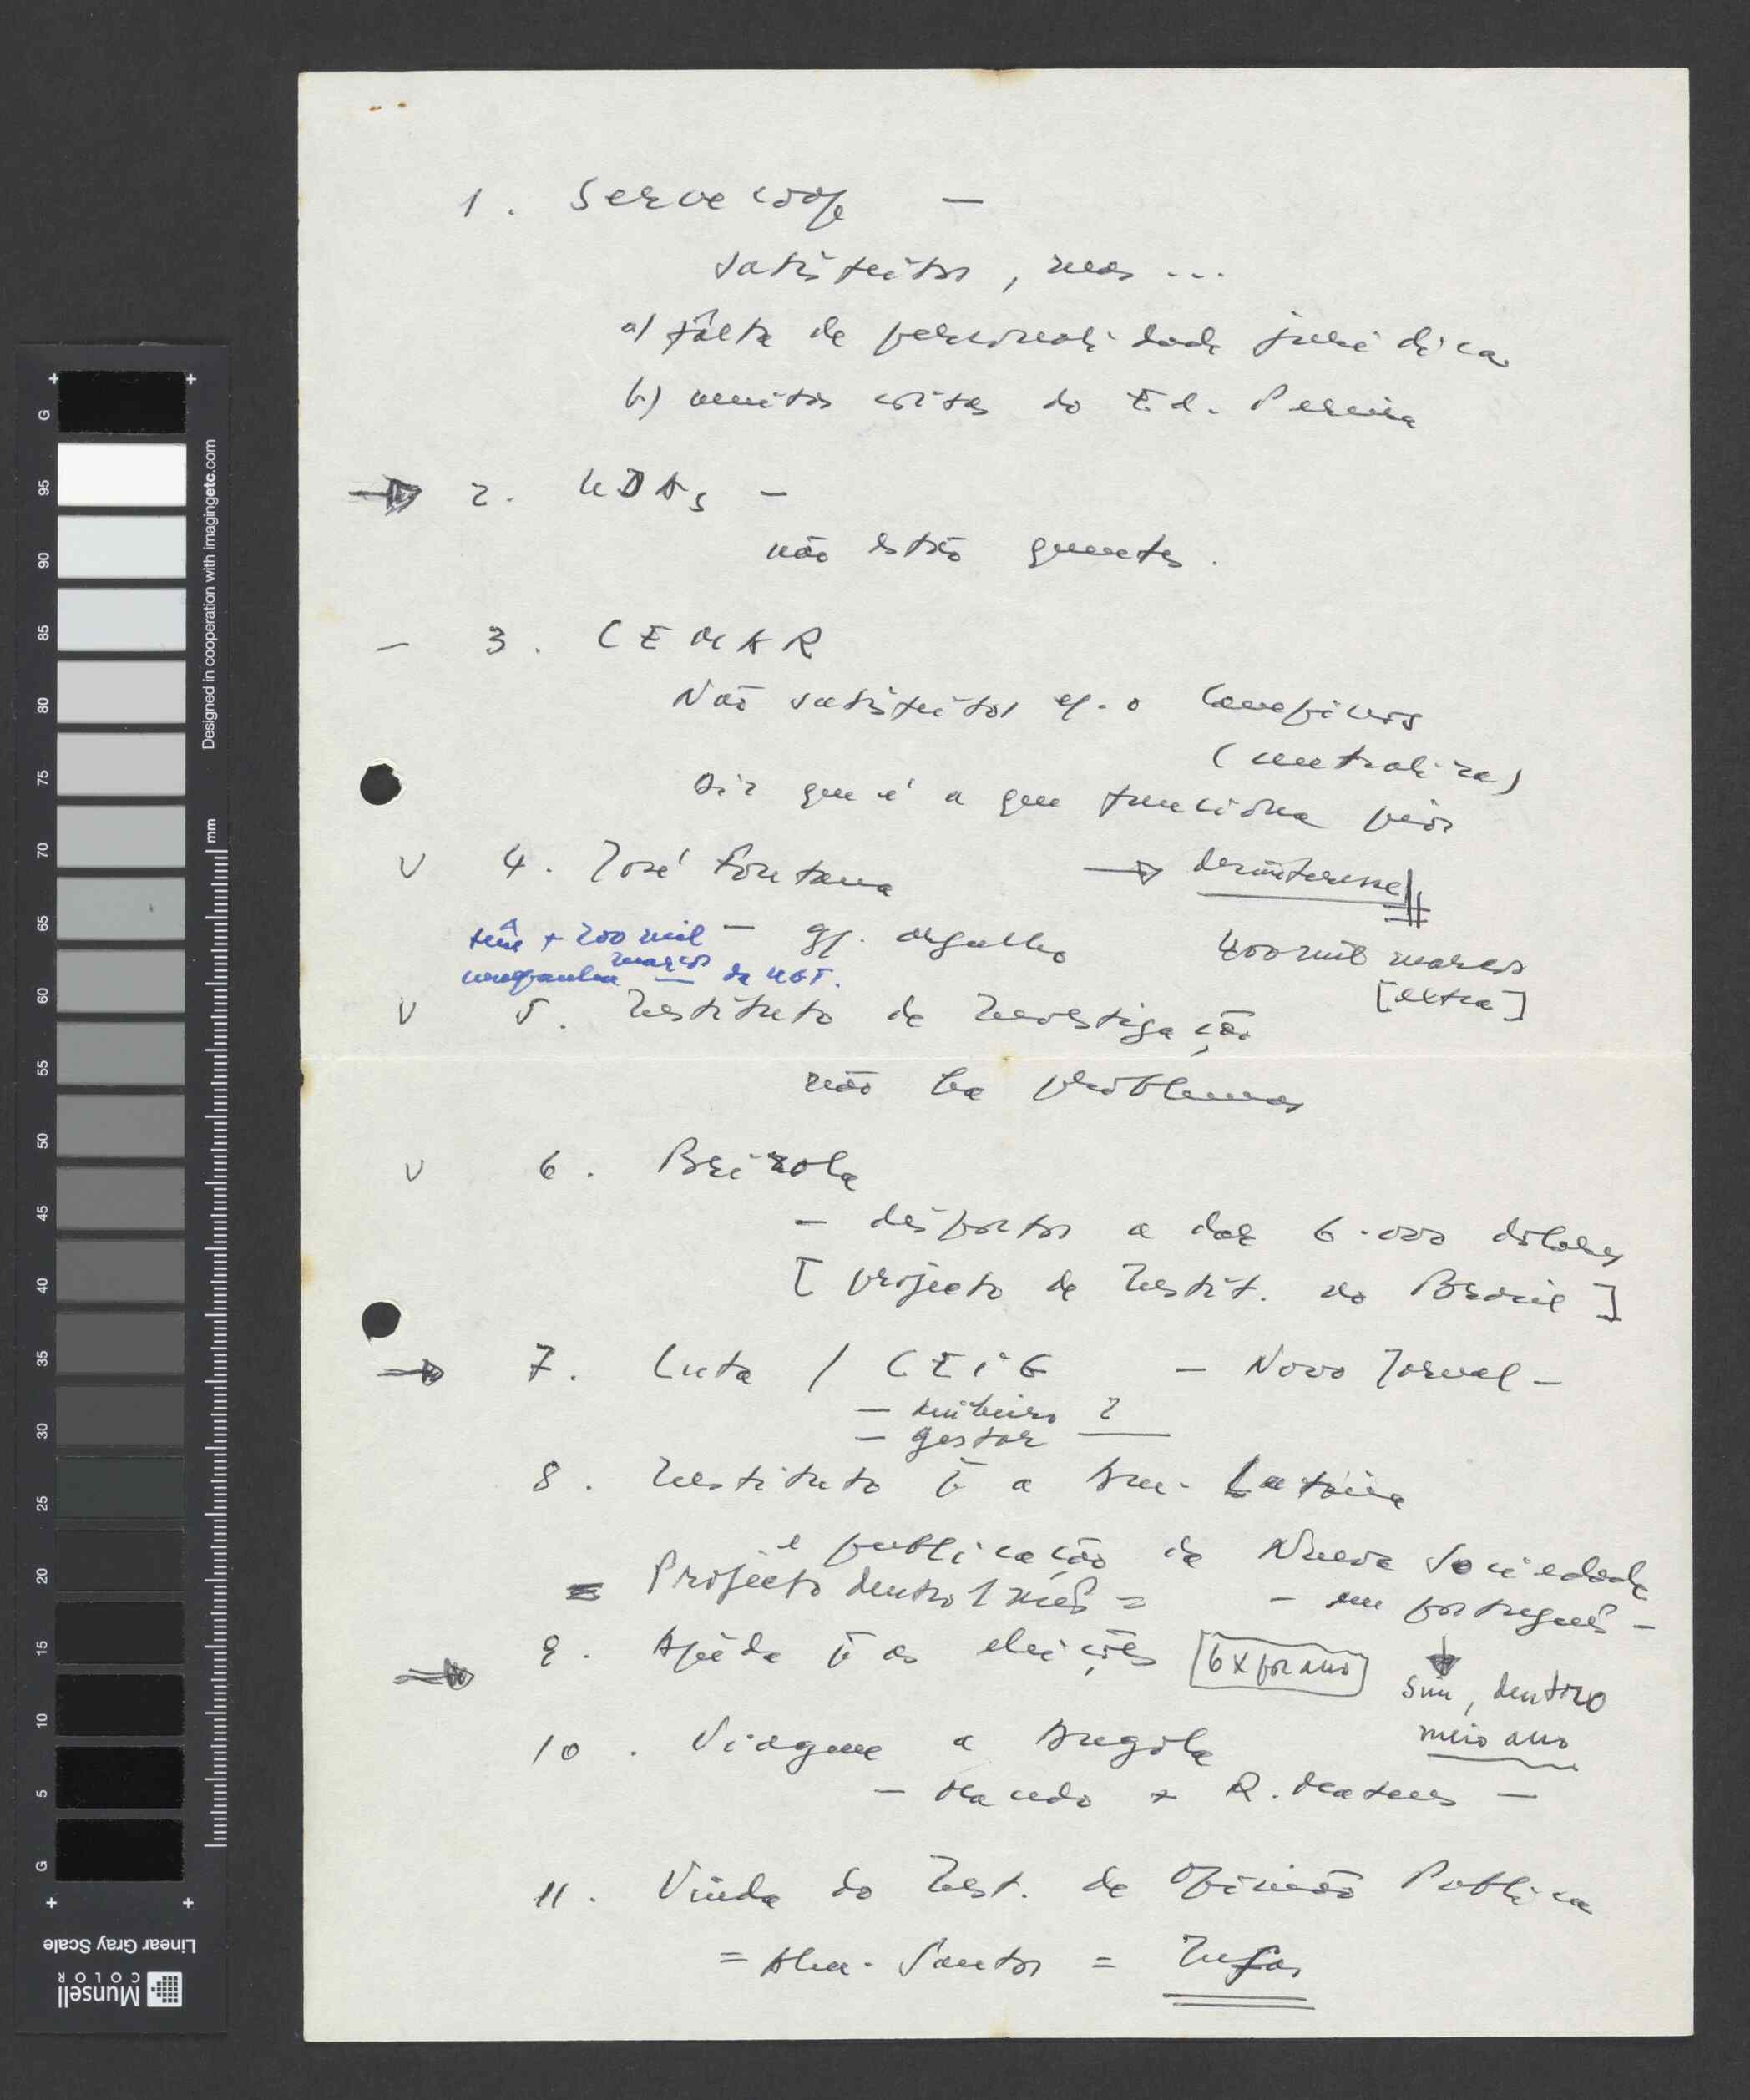 1. Servecoop —
satisfeitos, mas ...
a) falta de personalidade jurídica
b) muitas coisas do Ed. Pereira
2. UDAs —
não estão quentes.
— 3. CEMAR
Não satisfeitos c/. o Campinos
(centraliza)
Diz que é a que funciona pior
V 4. José Fontana → desinteresse
— gr. orgulho
400 mil marcos
[extra]
têm + 200 mil
marcos
campanha — da UGT.
V 5. Instituto de Investigação
não ha problemas
V 6. Brizola
— dispostos a dar 6.000 dólares
[projecto de Instit. no Brasil]
7. Luta / CEiG — Novo Jornal —
— dinheiro ?
— gestor
8. Instituto p a Am. Latina
e publicação da Nueva Sociedade
= Projecto dentro 1 mês = — em português —
9. Ajuda p as eleições [6 x por ano]
sim, dentro
meio ano
10. Viagem a Angola
— Macedo + R. Mateus —
11. Vinda do Inst. de Opinião Publica
= Alm. Santos = Infas
G 95 90 85 80 75 70 65 60 55 50 45 40 35 30 25 20 15 10 5 G
mm
Designed in cooperation with imagingetc.com
Linear Gray Scale
Munsell
COLOR